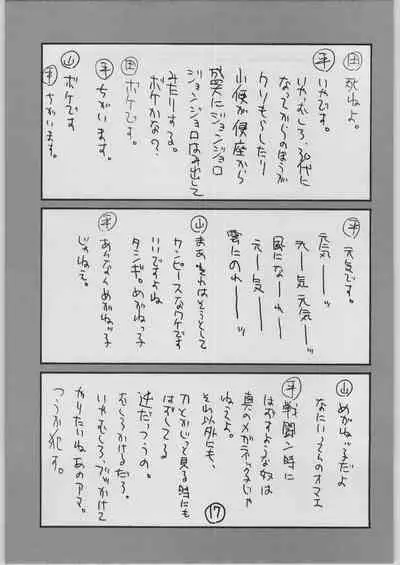 田 死ねよ。
平 いやです。
いやむしろ、30代に
なってからのほうが
クソもらしたり
小便が便座から
盛大にジョンジョロ
ジョンジョロはみ出して
みたりする。
ボケかな?、
田 ボケです。
平 ちがいます。
山 ボケです
平 ちがいます。
平 元気です。
元気ーーッ
えー気元気ーーッ
風になーれーー
えー気ーー
雲にのれーーッ
山 まあそれはそうとして
ワンピースなワケです
いいですよね
タシギ。めがねっ子
平 あんなんめがねっ子
じゃねえ。
山 めがねっ子だよ
なにいってんのオマエ
平 戦闘ン時に
はずすような奴は
真のメガネっ子じゃ
ねえよ。
それ以外にも、
刀とかじって見る時にも
はずしてる
逆だっつうの。
むしろかけるだろ。
いやむしろ、ブッかけて
やりたいねあのアマ。
つうか犯す。
17